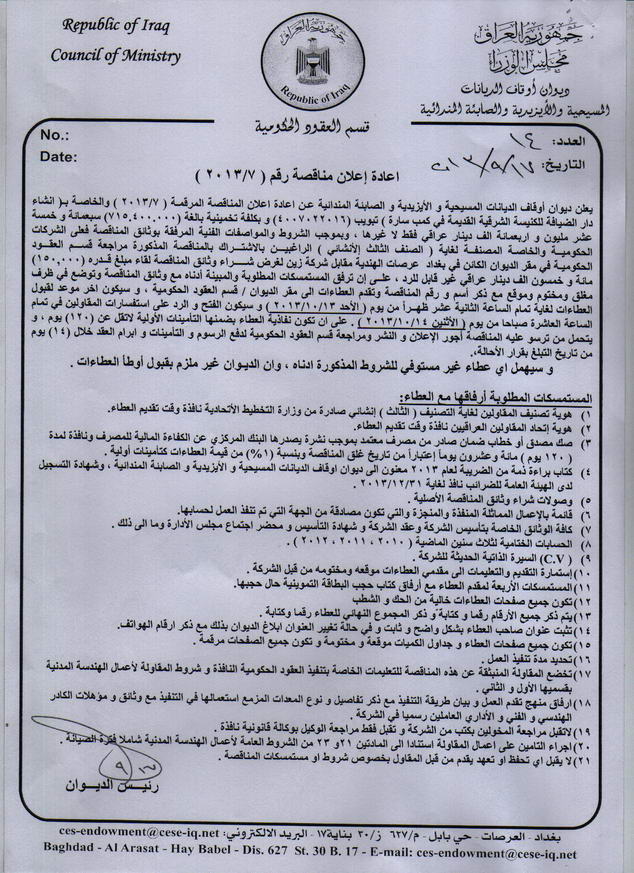 Republic of Iraq
Council of Ministry
جمهورية العراق
مجلس الوزراء
ديوان أوقاف الديانات
المسيحية والأيزيدية والصابئة المندائية
جمهورية العراق
Republic of Iraq
قسم العقود الحكومية
No.:
Date:
العدد: ١٤
التاريخ: ٢٠١٣/٩/١٧
اعادة إعلان مناقصة رقم ( ٢٠١٣/٧ )
يعلن ديوان أوقاف الديانات المسيحية و الأيزيدية و الصابئة المندائية عن اعادة اعلان المناقصة المرقمة ( ٢٠١٣/٧ ) والخاصة بـ( انشاء
دار الضيافة للكنيسة الشرقية القديمة في كمب سارة ) تبويب (٤٠٠٧٠٢٢٠١٦) و بكلفة تخمينية بالغة (٧١٥.٤٠٠.٠٠٠) سبعمائة و خمسة
عشر مليون و اربعمائة الف دينار عراقي فقط لا غيرها ، وبموجب الشروط والمواصفات الفنية المرفقة بوثائق المناقصة فعلى الشركات
الحكومية والخاصة المصنفة لغاية ( الصنف الثالث إنشائي ) الراغبين بالاشتراك بالمناقصة المذكورة مراجعة قسم العقود
الحكومية في مقر الديوان الكائن في بغداد عرصات الهندية مقابل شركة زين لغرض شراء وثائق المناقصة لقاء مبلغ قدره (١٥٠,٠٠٠)
مائة و خمسون الف دينار عراقي غير قابل للرد ، على إن ترفق المستمسكات المطلوبة والمبينة أدناه مع وثائق المناقصة وتوضع في ظرف
مغلق ومختوم وموقع مع ذكر أسم و رقم المناقصة وتقدم العطاءات الى مقر الديوان / قسم العقود الحكومية ، و سيكون اخر موعد لقبول
العطاءات لغاية تمام الساعة الثانية عشر ظهراً من يوم ( الأحد ٢٠١٣/١٠/١٣ ) و سيكون الفتح و الرد على استفسارات المقاولين في تمام
الساعة العاشرة صباحا من يوم ( الأثنين ٢٠١٣/١٠/١٤ ) . على ان تكون نفاذية العطاء بضمنها التأمينات الأولية لاتقل عن (١٢٠) يوم ، و
يتحمل من ترسو عليه المناقصة أجور الإعلان و النشر ومراجعة قسم العقود الحكومية لدفع الرسوم و التأمينات و ابرام العقد خلال (١٤) يوم
من تاريخ التبلغ بقرار الأحالة.
و سيهمل اي عطاء غير مستوفي للشروط المذكورة ادناه ، وان الديوان غير ملزم بقبول أوطأ العطاءات .
المستمسكات المطلوبة أرفاقها مع العطاء:
١) هوية تصنيف المقاولين لغاية التصنيف ( الثالث ) إنشائي صادرة من وزارة التخطيط الأتحادية نافذة وقت تقديم العطاء.
٢) هوية إتحاد المقاولين العراقيين نافذة وقت تقديم العطاء.
٣) صك مصدق أو خطاب ضمان صادر من مصرف معتمد بموجب نشرة يصدرها البنك المركزي عن الكفاءة المالية للمصرف ونافذة لمدة
(١٢٠ يوم ) مائة وعشرون يوماً إعتباراً من تاريخ غلق المناقصة وبنسبة (١%) من قيمة العطاءات كتأمينات أولية .
٤) كتاب براءة ذمة من الضريبة لعام ٢٠١٣ معنون الى ديوان اوقاف الديانات المسيحية و الأيزيدية و الصابئة المندائية ، وشهادة التسجيل
لدى الهيئة العامة للضرائب نافذ لغاية ٢٠١٣/١٢/٣١ .
٥) وصولات شراء وثائق المناقصة الأصلية .
٦) قائمة بالإعمال المماثلة المنفذة والمنجزة والتي تكون مصادقة من الجهة التي تم تنفذ العمل لحسابها.
٧) كافة الوثائق الخاصة بتأسيس الشركة وعقد الشركة و شهادة التأسيس و محضر اجتماع مجلس الأدارة وما الى ذلك .
٨) الحسابات الختامية لثلاث سنين الماضية ( ٢٠١٠ ، ٢٠١١ ، ٢٠١٢ ) .
٩) (C.V) السيرة الذاتية الحديثة للشركة .
١٠) إستمارة التقديم والتعليمات الى مقدمي العطاءات موقعه ومختومه من قبل الشركة .
١١) المستمسكات الأربعة لمقدم العطاء مع أرفاق كتاب حجب البطاقة التموينية حال حجبها.
١٢) تكون جميع صفحات العطاءات خالية من الحك و الشطب
١٣) يتم ذكر جميع الأرقام رقما و كتابة و ذكر المجموع النهائي للعطاء رقما وكتابة .
١٤) تثبت عنوان صاحب العطاء بشكل واضح و ثابت و في حالة تغيير العنوان ابلاغ الديوان بذلك مع ذكر ارقام الهواتف.
١٥) تكون جميع صفحات العطاء و جداول الكميات موقعة و مختومة و تكون جميع الصفحات مرقمة .
١٦) تحديد مدة تنفيذ العمل .
١٧) تخضع المقاولة المنبثقة عن هذه المناقصة للتعليمات الخاصة بتنفيذ العقود الحكومية النافذة و شروط المقاولة لأعمال الهندسة المدنية
بقسميها الأول و الثاني .
١٨) ارفاق منهج تقدم العمل و بيان طريقة التنفيذ مع ذكر تفاصيل و نوع المعدات المزمع استعمالها في التنفيذ مع وثائق و مؤهلات الكادر
الهندسي و الفني و الأداري العاملين رسميا في الشركة .
١٩) لاتقبل مراجعة المخولين بكتب من الشركة و تقبل فقط مراجعة الوكيل بوكالة قانونية نافذة .
٢٠) اجراء التامين على اعمال المقاولة استنادا الى المادتين ٢١و ٢٣ من الشروط العامة لأعمال الهندسة المدنية شاملا فترة الصيانة .
٢١) لا يقبل اي تحفظ او تعهد يقدم من قبل المقاول بخصوص شروط او مستمسكات المناقصة .
رئيس الديوان
بغداد - العرصات - حي بابل - م/٦٢٧ ز/٣٠ بناية١٧ - البريد الالكتروني: ces-endowment@cese-iq.net
Baghdad - Al Arasat - Hay Babel - Dis. 627 St. 30 B. 17 - E-mail: ces-endowment@cese-iq.net